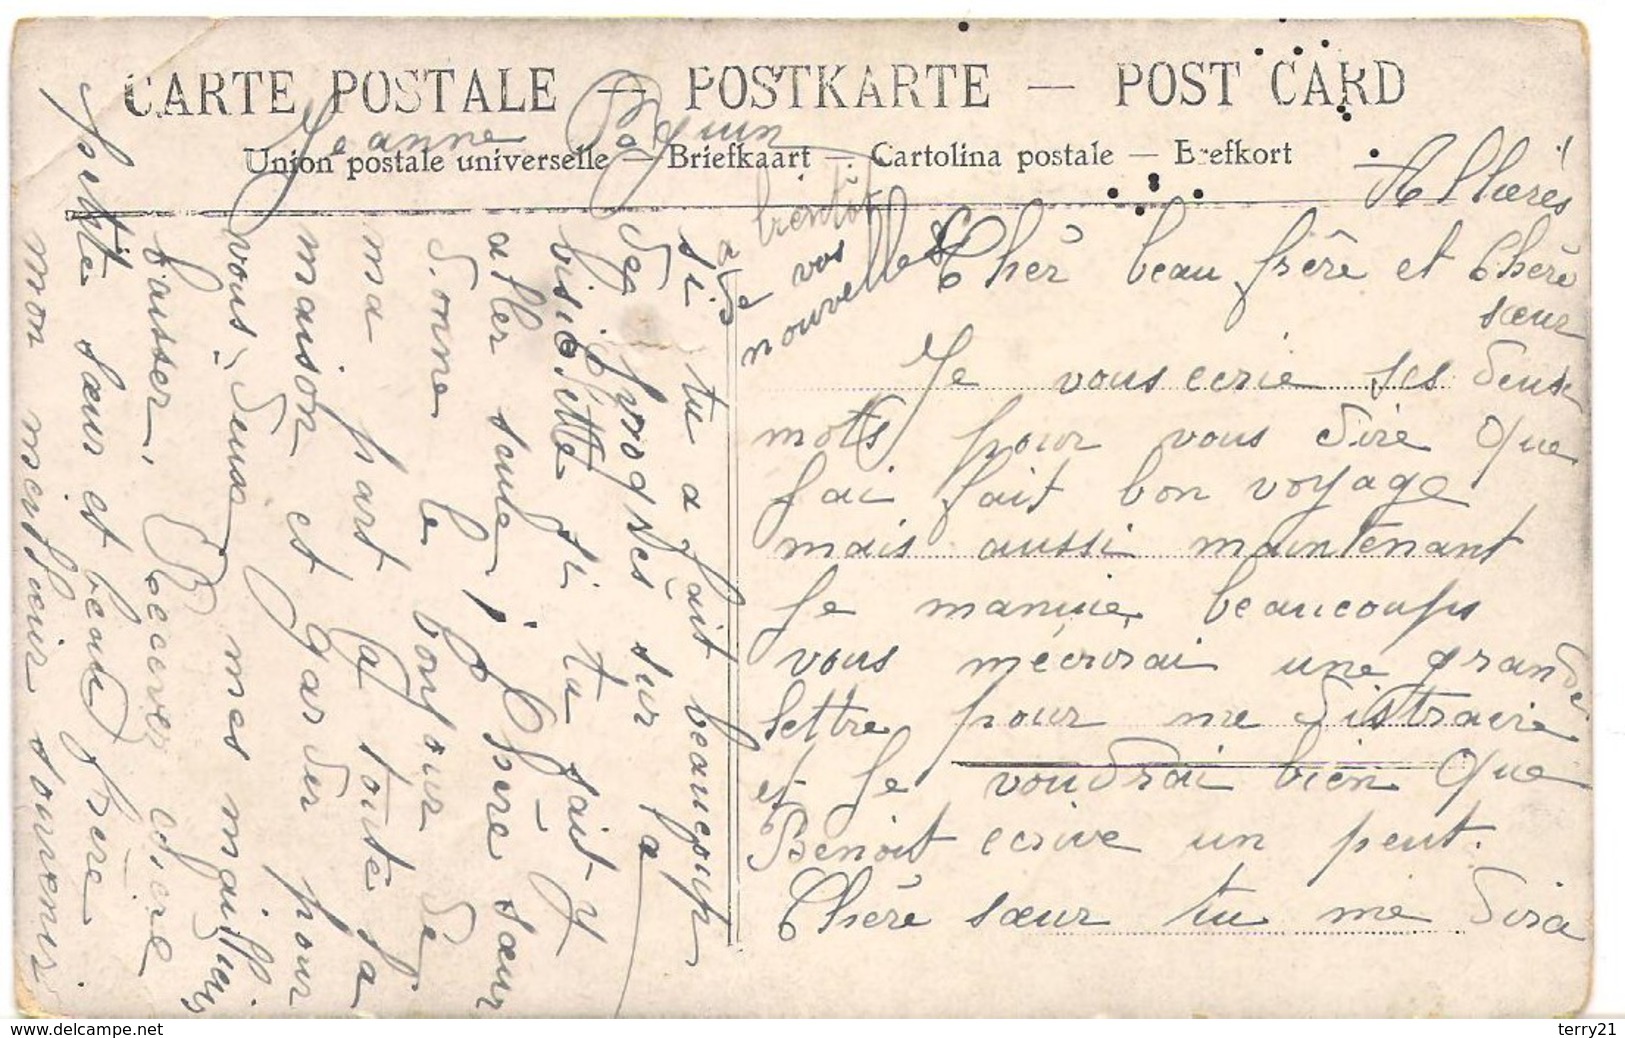 CARTE POSTALE — POSTKARTE — POST CARD
Union postale universelle — Briefkaart — Cartolina postale — Brefkort
Allierés
Chèr beau frêre et Chère
sœur
Je vous ecrie ses deux
mots pour vous dire que
jai fait bon voyage
mais aussi maintenant
Je manuie beaucoups
vous mécrirai une grande
lettre pour me distraire
et Je voudrai bien que
Benoit ecrive un peut.
Chère sœur tu me dira
si tu a fait beaucoup
de progrès sur la
bisiclette si tu sait y
aller seule, Chère sœur
donne le bonjour de
ma part a toute la
maison et garder pour
vous deux mes mailleur
baisser. Recever chère
petite sœur et beau frère
mon meilleur souvenir
Jeanne Paquin
a bientôt
de vos
nouvelles
www.delcampe.net
terry21